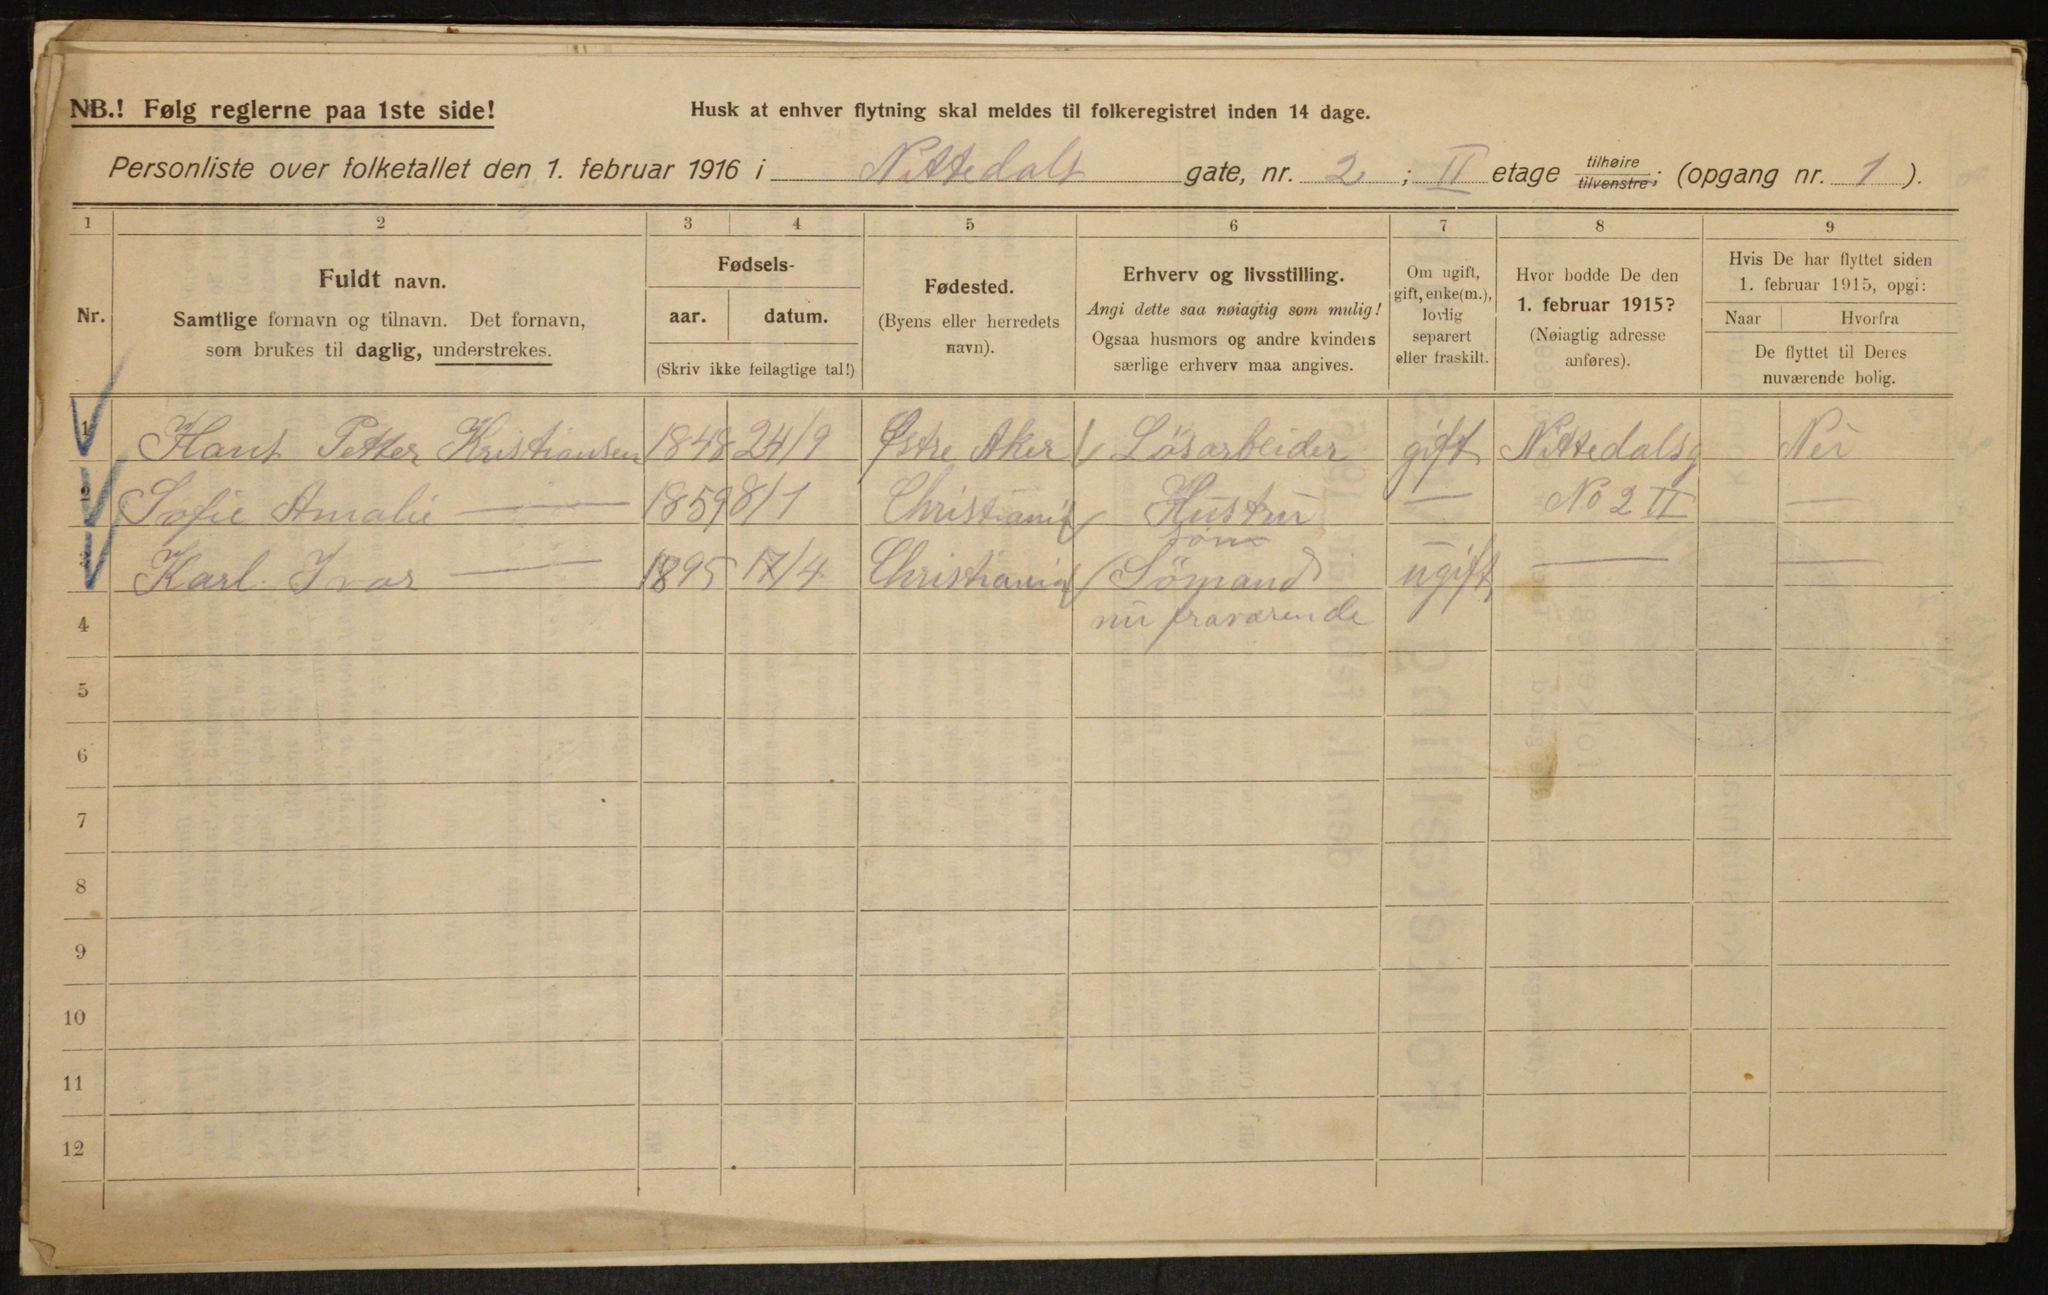 NB.! Følg reglerne paa 1ste side!
Husk at enhver flytning skal meldes til folkeregistret inden 14 dage.
Personliste over folketallet den 1. februar 1916 i Nittedals gate, nr. 2 ; II etage tilhøire tilvenstre; (opgang nr. 1 ).
1 2 3 4 5 6 7 8 9
Nr.
Fuldt navn.
Samtlige fornavn og tilnavn. Det fornavn,
som brukes til daglig, understrekes.
Fødsels-
aar. datum.
(Skriv ikke feilagtige tal!)
Fødested.
(Byens eller herredets
navn).
Erhverv og livsstilling.
Angi dette saa nøiagtig som mulig!
Ogsaa husmors og andre kvinders
særlige erhverv maa angives.
Om ugift,
gift, enke(m.),
lovlig
separert
eller fraskilt.
Hvor bodde De den
1. februar 1915?
(Nøiagtig adresse
anføres).
Hvis De har flyttet siden
1. februar 1915, opgi:
Naar Hvorfra
De flyttet til Deres
nuværende bolig.
1 Hans Petter Kristiansen 1848 24/9 Østre Aker Løsarbeider gift Nittedalsg Nei
2 Sofie Amalie — 1859 8/1 Christiania Hustru — No 2 II —
Søn
3 Karl Ivar — 1895 17/4 Christiania Sømand ugift — —
4 nu fraværende
5
6
7
8
9
10
11
12